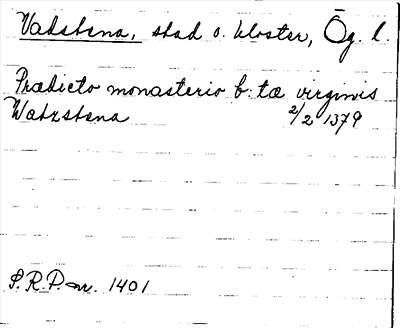 Vadstena, stad o. kloster, Ög. l.
Prædicto monasterio b. tæ virginis
Watzstena 2/2 1379
S.R.P. nr. 1401